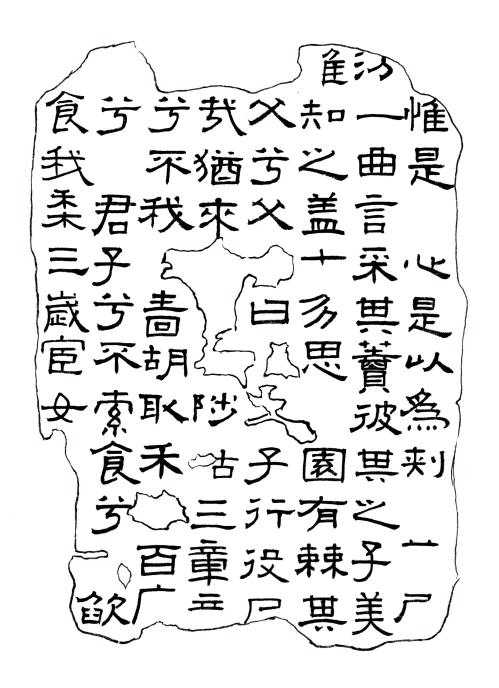 惟是心是以為刾
汾一曲言采其藚彼其之子美
知之盖勿思園有棘其
父兮父曰子行役
㦲猶來陟古三章
兮不我嗇胡取禾百
兮君子兮不素食兮欿
食我黍三歲宦女